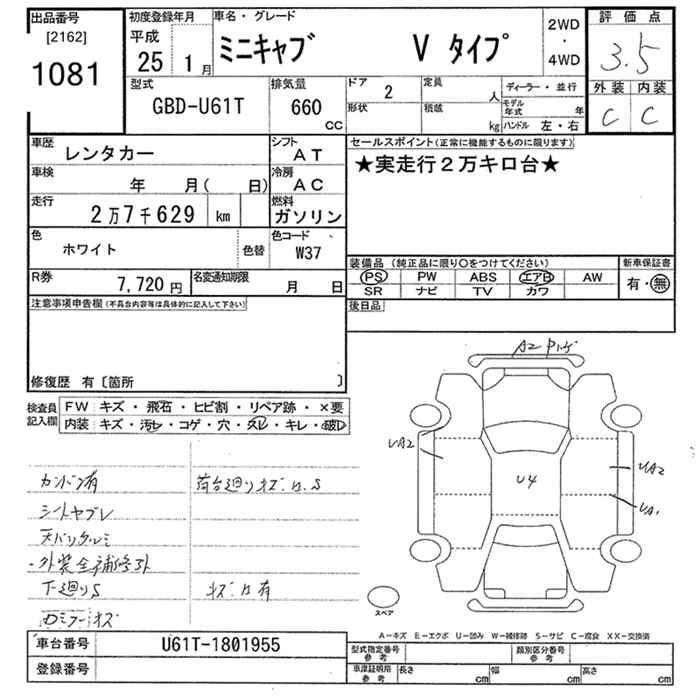 出品番号
[2162]
1081
初度登録年月
平成
25 1月
車名・グレード
ミニキャブ V タイプ
2WD
・
4WD
評価点
3.5
型式
GBD-U61T
排気量
660
CC
ドア
2
形状
定員
人
積載
kg
ディーラー・並行
モデル年式 年
ハンドル 左・右
外装 内装
C C
車歴
レンタカー
シフト
AT
車検
年 月( 日)
冷房
AC
走行
2万7千629 km
燃料
ガソリン
色
ホワイト
色替
色コード
W37
R券
7,720円
名変通知期限
月 日
セールスポイント(正常に機能するものに限ります)
★実走行2万キロ台★
装備品 (純正品に限り○をつけてください)
PS PW ABS エアB AW
SR ナビ TV カワ
新車保証書
有・無
後日品
注意事項申告欄(不具合内容等は具体的に記入して下さい)
修復歴 有〔箇所 〕
検査員記入欄
FW キズ・飛石・ヒビ割・リペア跡・×要
内装 キズ・汚レ・コゲ・穴・スレ・キレ・破レ
カンバン有
荷台廻りキズ
シートヤブレ
下廻りS
有
A2
UA2
U4
UA2
UA1
スペア
A-キズ E-エクボ U-凹み W-補修跡 S-サビ C-腐食 XX-交換済
車台番号
U61T-1801955
登録番号
型式指定番号
参考
類別区分番号
参考
車庫証明用
参考
長さ cm
幅 cm
高さ cm